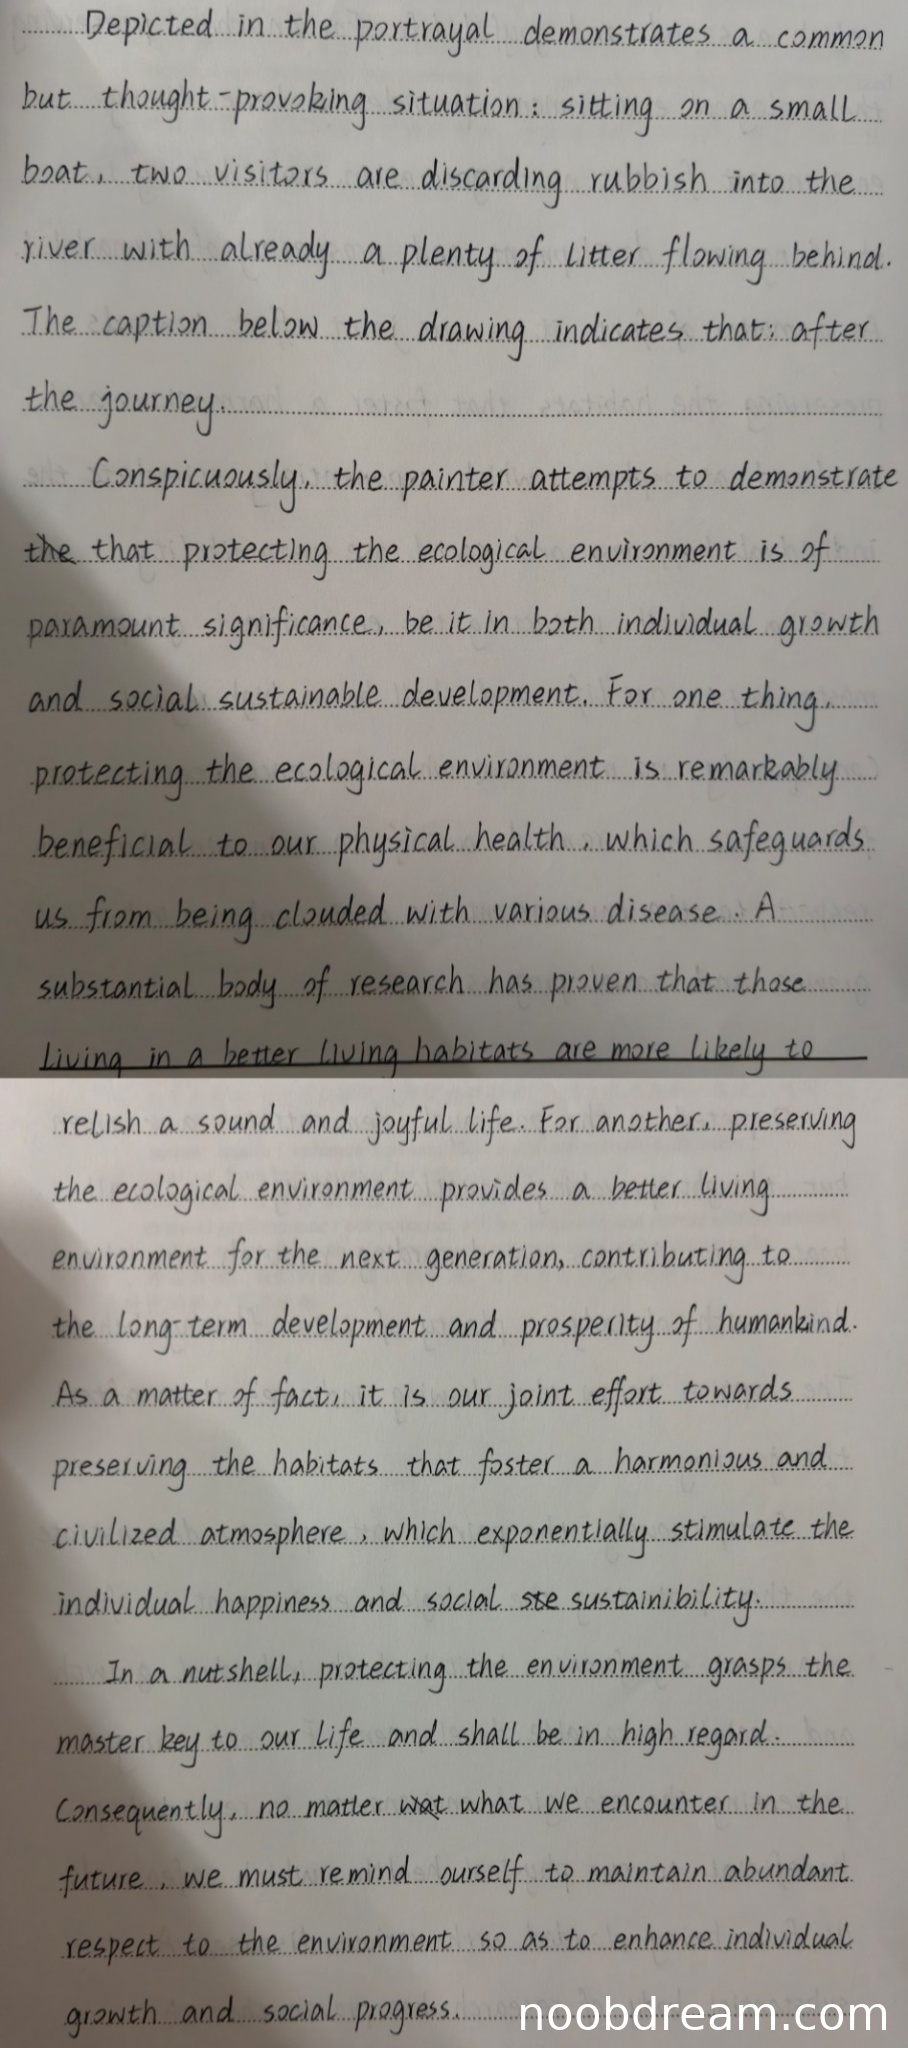 Depicted in the portrayal demonstrates a common
but thought-provoking situation: sitting on a small
boat, two visitors are discarding rubbish into the
river with already a plenty of litter flowing behind.
The caption below the drawing indicates that: after
the journey.
Conspicuously, the painter attempts to demonstrate
the that protecting the ecological environment is of
paramount significance, be it in both individual growth
and social sustainable development. For one thing,
protecting the ecological environment is remarkably
beneficial to our physical health, which safeguards
us from being clouded with various disease. A
substantial body of research has proven that those
living in a better living habitats are more likely to
relish a sound and joyful life. For another, preserving
the ecological environment provides a better living
environment for the next generation, contributing to
the long-term development and prosperity of humankind.
As a matter of fact, it is our joint effort towards
preserving the habitats that foster a harmonious and
civilized atmosphere, which exponentially stimulate the
individual happiness and social ste sustainibility.
In a nutshell, protecting the environment grasps the
master key to our life and shall be in high regard.
Consequently, no matter wat what we encounter in the
future, we must remind ourself to maintain abundant
respect to the environment so as to enhance individual
growth and social progress.
noobdream.com